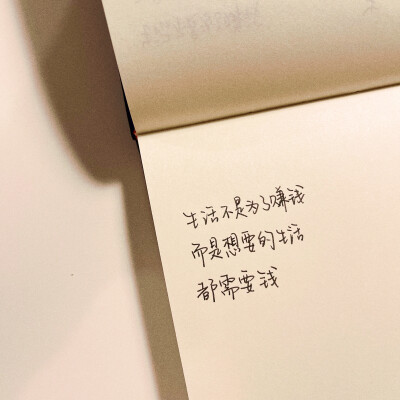 生活不是为了赚钱
而是想要的生活
都需要钱